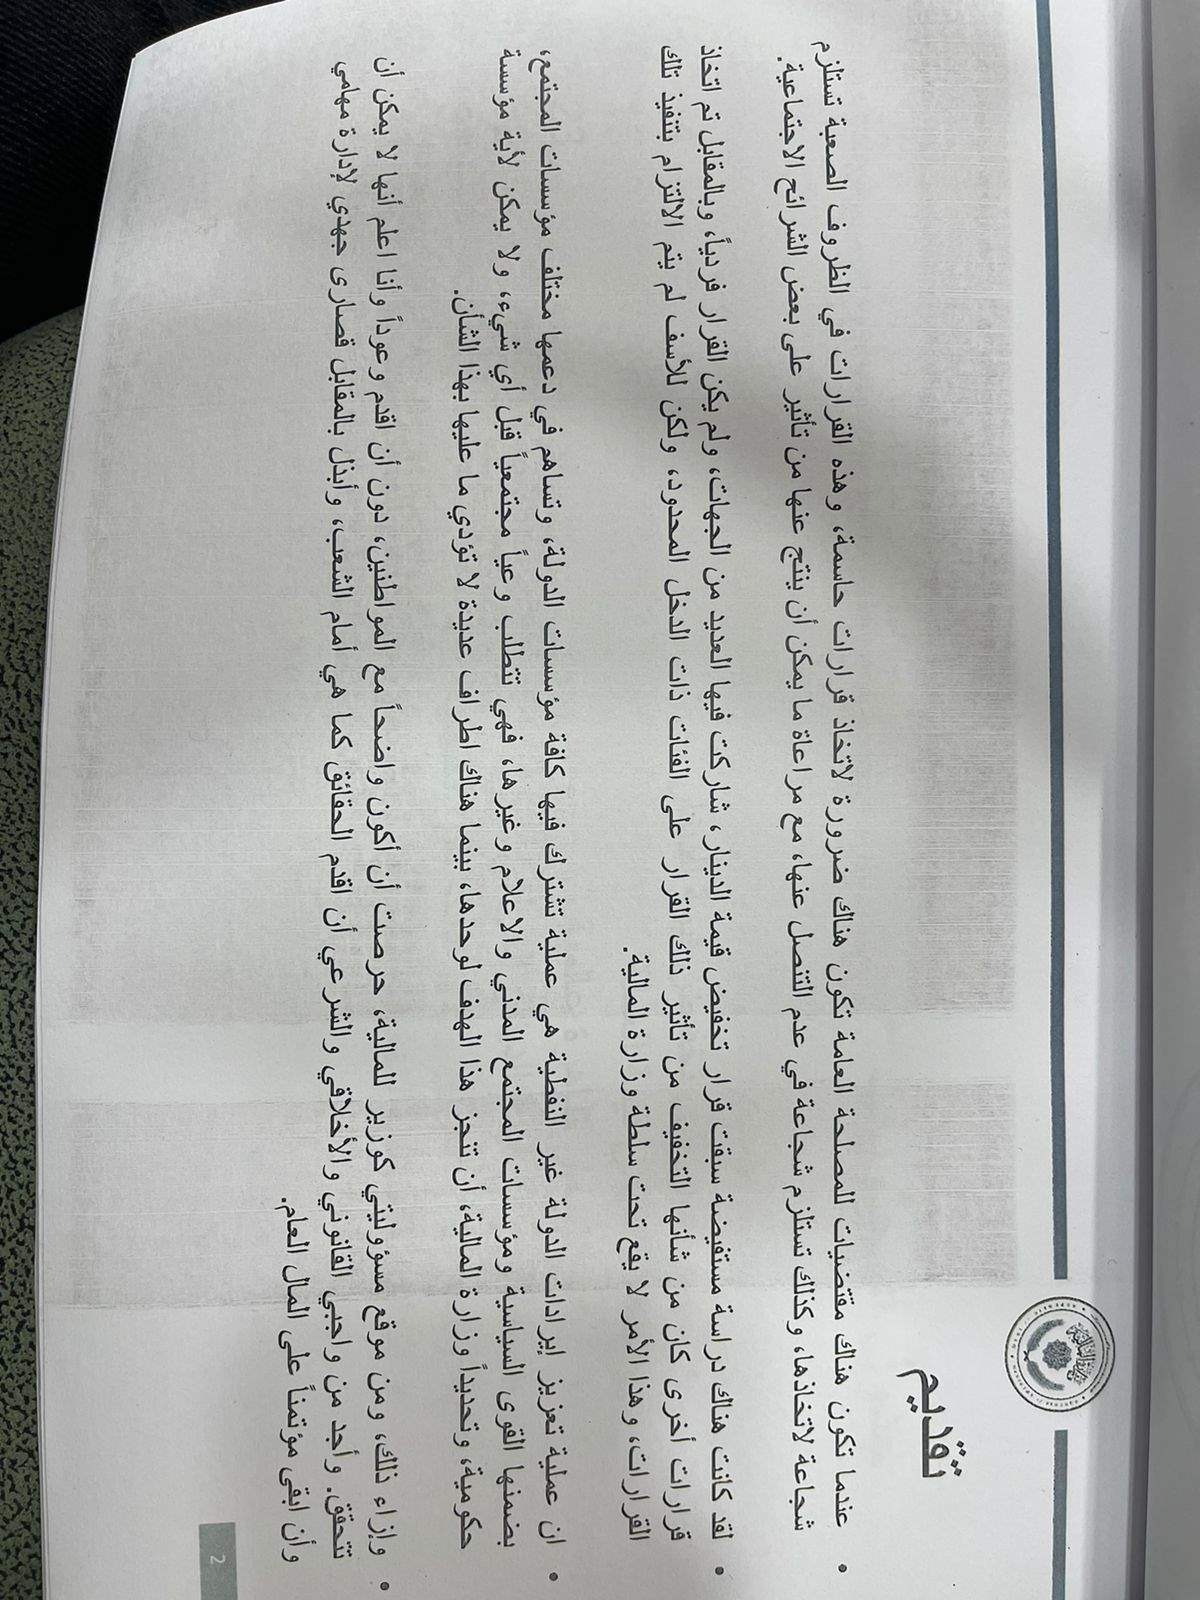 وزارة المالية
تقديم
• عندما تكون هناك مقتضيات للمصلحة العامة تكون هناك ضرورة لاتخاذ قرارات حاسمة، وهذه القرارات في الظروف الصعبة تستلزم
شجاعة لاتخاذها، وكذلك تستلزم شجاعة في عدم التنصل عنها، مع مراعاة ما يمكن أن ينتج عنها من تأثير على بعض الشرائح الاجتماعية.
• لقد كانت هناك دراسة مستفيضة سبقت قرار تخفيض قيمة الدينار، شاركت فيها العديد من الجهات، ولم يكن القرار فردياً، وبالمقابل تم اتخاذ
قرارات أخرى كان من شأنها التخفيف من تأثير ذلك القرار على الفئات ذات الدخل المحدود، ولكن للأسف لم يتم الالتزام بتنفيذ تلك
القرارات، وهذا الأمر لا يقع تحت سلطة وزارة المالية.
• ان عملية تعزيز إيرادات الدولة غير النفطية هي عملية تشترك فيها كافة مؤسسات الدولة، وتساهم في دعمها مختلف مؤسسات المجتمع،
بضمنها القوى السياسية ومؤسسات المجتمع المدني والاعلام وغيرها، فهي تتطلب وعياً مجتمعياً قبل أي شيء، ولا يمكن لأية مؤسسة
حكومية، وتحديداً وزارة المالية، أن تنجز هذا الهدف لوحدها، بينما هناك اطراف عديدة لا تؤدي ما عليها بهذا الشأن.
• وإزاء ذلك، ومن موقع مسؤوليتي كوزير للمالية، حرصت أن أكون واضحاً مع المواطنين، دون أن اقدم وعوداً وأنا اعلم أنها لا يمكن أن
تتحقق. وأجد من واجبي القانوني والأخلاقي والشرعي أن اقدم الحقائق كما هي أمام الشعب، وأبذل بالمقابل قصارى جهدي لإدارة مهامي
وأن ابقى مؤتمناً على المال العام.
2